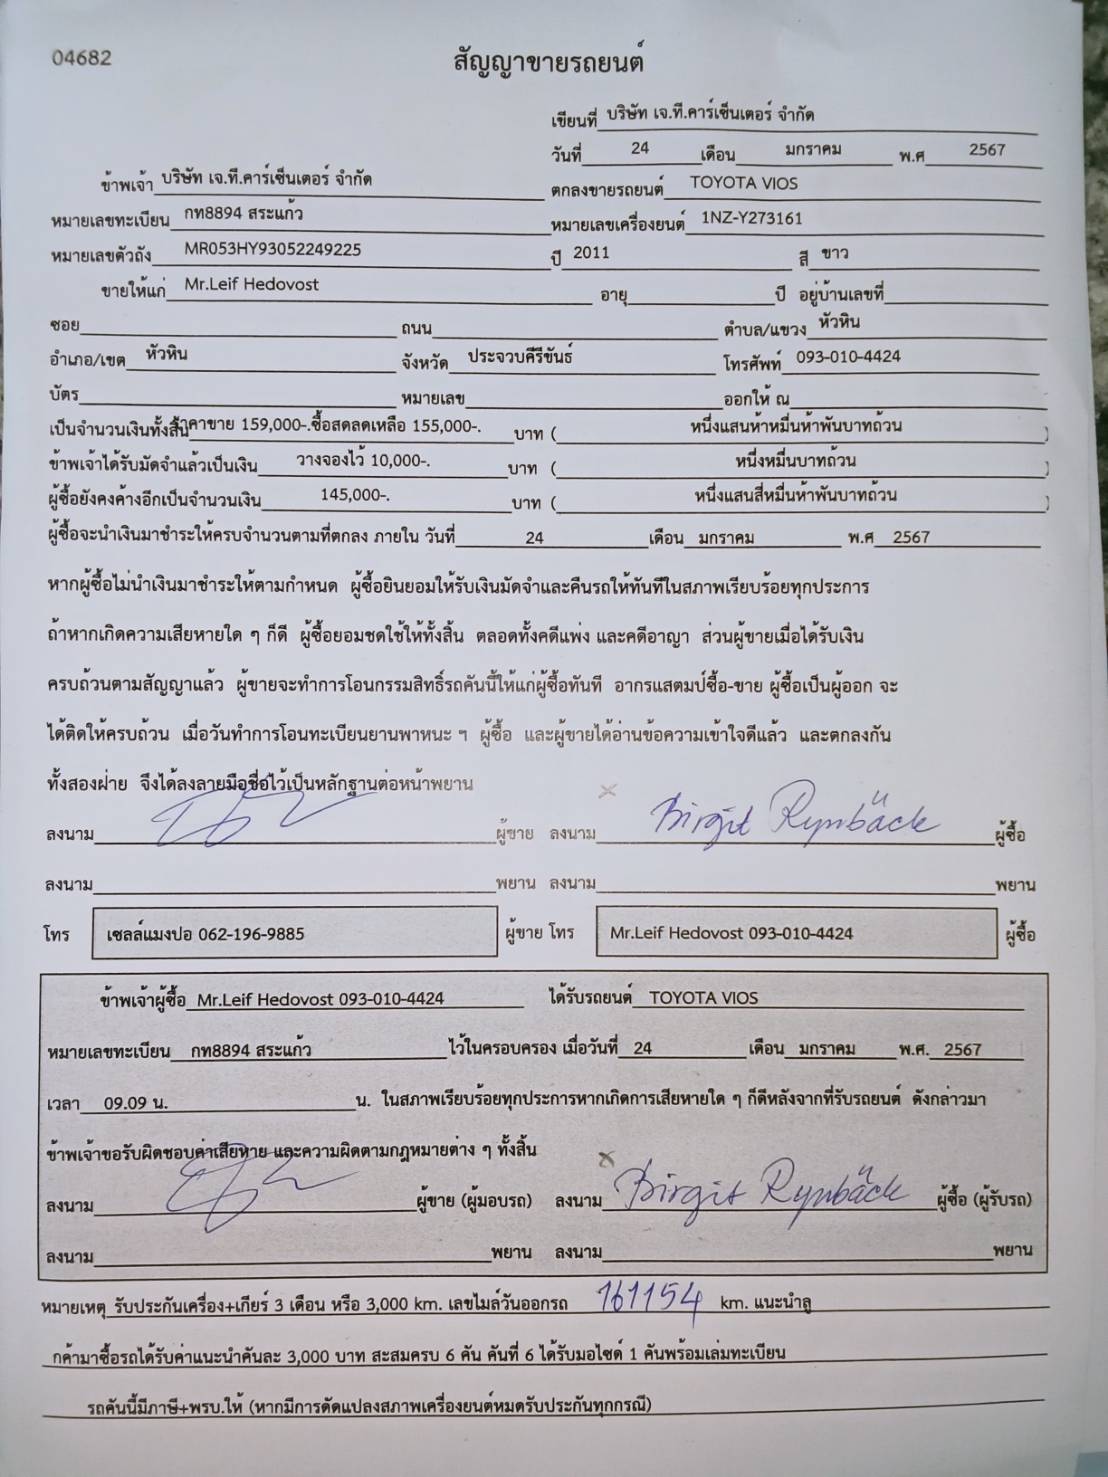 04682
สัญญาขายรถยนต์
เขียนที่ บริษัท เจ.ที.คาร์เซ็นเตอร์ จำกัด
วันที่ 24 เดือน มกราคม พ.ศ 2567
ข้าพเจ้า บริษัท เจ.ที.คาร์เซ็นเตอร์ จำกัด ตกลงขายรถยนต์ TOYOTA VIOS
หมายเลขทะเบียน กท8894 สระแก้ว หมายเลขเครื่องยนต์ 1NZ-Y273161
หมายเลขตัวถัง MR053HY93052249225 ปี 2011 สี ขาว
ขายให้แก่ Mr.Leif Hedovost อายุ ปี อยู่บ้านเลขที่
ซอย ถนน ตำบล/แขวง หัวหิน
อำเภอ/เขต หัวหิน จังหวัด ประจวบคีรีขันธ์ โทรศัพท์ 093-010-4424
บัตร หมายเลข ออกให้ ณ
เป็นจำนวนเงินทั้งสิ้น ราคาขาย 159,000-.ซื้อสดลดเหลือ 155,000-. บาท ( หนึ่งแสนห้าหมื่นห้าพันบาทถ้วน )
ข้าพเจ้าได้รับมัดจำแล้วเป็นเงิน วางจองไว้ 10,000-. บาท ( หนึ่งหมื่นบาทถ้วน )
ผู้ซื้อยังคงค้างอีกเป็นจำนวนเงิน 145,000-. บาท ( หนึ่งแสนสี่หมื่นห้าพันบาทถ้วน )
ผู้ซื้อจะนำเงินมาชำระให้ครบจำนวนตามที่ตกลง ภายใน วันที่ 24 เดือน มกราคม พ.ศ 2567
หากผู้ซื้อไม่นำเงินมาชำระให้ตามกำหนด ผู้ซื้อยินยอมให้รับเงินมัดจำและคืนรถให้ทันทีในสภาพเรียบร้อยทุกประการ
ถ้าหากเกิดความเสียหายใด ๆ ก็ดี ผู้ซื้อยอมชดใช้ให้ทั้งสิ้น ตลอดทั้งคดีแพ่ง และคดีอาญา ส่วนผู้ขายเมื่อได้รับเงิน
ครบถ้วนตามสัญญาแล้ว ผู้ขายจะทำการโอนกรรมสิทธิ์รถคันนี้ให้แก่ผู้ซื้อทันที อากรแสตมป์ซื้อ-ขาย ผู้ซื้อเป็นผู้ออก จะ
ได้ติดให้ครบถ้วน เมื่อวันทำการโอนทะเบียนยานพาหนะ ฯ ผู้ซื้อ และผู้ขายได้อ่านข้อความเข้าใจดีแล้ว และตกลงกัน
ทั้งสองฝ่าย จึงได้ลงลายมือชื่อไว้เป็นหลักฐานต่อหน้าพยาน
ลงนาม ผู้ขาย ลงนาม Birgit Rynbäck ผู้ซื้อ
ลงนาม พยาน ลงนาม พยาน
โทร เซลล์แมงปอ 062-196-9885 ผู้ขาย โทร Mr.Leif Hedovost 093-010-4424 ผู้ซื้อ
ข้าพเจ้าผู้ซื้อ Mr.Leif Hedovost 093-010-4424 ได้รับรถยนต์ TOYOTA VIOS
หมายเลขทะเบียน กท8894 สระแก้ว ไว้ในครอบครอง เมื่อวันที่ 24 เดือน มกราคม พ.ศ. 2567
เวลา 09.09 น. น. ในสภาพเรียบร้อยทุกประการหากเกิดการเสียหายใด ๆ ก็ดีหลังจากที่รับรถยนต์ ดังกล่าวมา
ข้าพเจ้าขอรับผิดชอบค่าเสียหาย และความผิดตามกฎหมายต่าง ๆ ทั้งสิ้น
ลงนาม ผู้ขาย (ผู้มอบรถ) ลงนาม Birgit Rynbäck ผู้ซื้อ (ผู้รับรถ)
ลงนาม พยาน ลงนาม พยาน
หมายเหตุ รับประกันเครื่อง+เกียร์ 3 เดือน หรือ 3,000 km. เลขไมล์วันออกรถ 161154 km. แนะนำลู
กค้ามาซื้อรถได้รับค่าแนะนำคันละ 3,000 บาท สะสมครบ 6 คัน คันที่ 6 ได้รับมอไซด์ 1 คันพร้อมเล่มทะเบียน
รถคันนี้มีภาษี+พรบ.ให้ (หากมีการดัดแปลงสภาพเครื่องยนต์หมดรับประกันทุกกรณี)